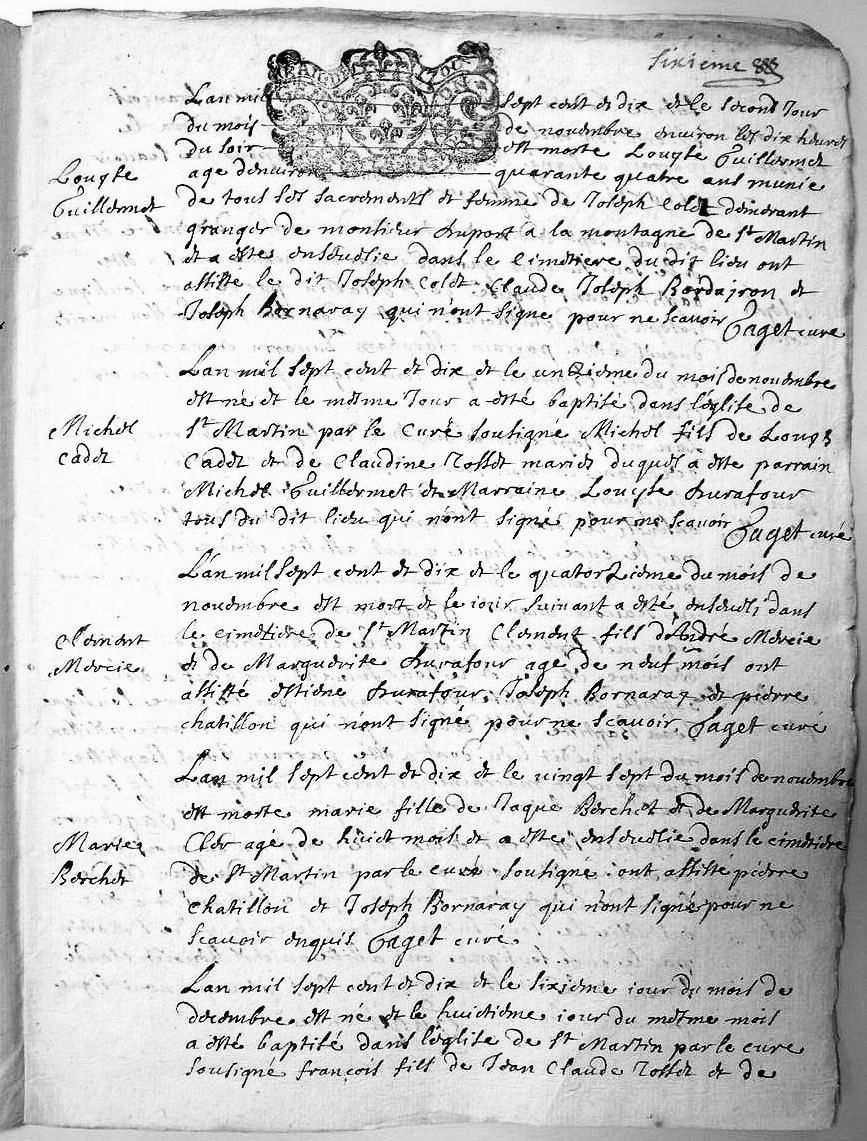 sixieme
Lan mil sept cent et dix et le second Jour
du mois de novembre environ les dix heures
du soir est morte Louyse Guillermet
age denviron quarante quatre ans munie
Louyse
Guillermet
de tous ses sacrements et femme de Joseph Colet demeurant
granger de monsieur Duport a la montagne de St Martin
et a este ensevelie dans le cimetiere du dit lieu ont
assisté le dit Joseph Colet Claude Joseph
Joseph Bornaray qui n'ont signe pour ne scavoir Faget cure
Lan mil sept cent et dix et le unzieme du mois de novembre
est né et le meme Jour a esté baptisé dans l'église de
Michel
Cadet
St Martin par le Curé sousigné Michel fils de Louys
Cadet et de Claudine Rosset mariés duquel a este parrain
Michel Guillermet et Marraine Louyse Durafour
tous du dit lieu qui n'ont signé pour ne scavoir Faget curé
Lan mil sept cent et dix et le quatorzieme du mois de
novembre est mort et le iour suivant a esté enseveli dans
Clement
Mercie
le cimetiere de St Martin Clement fils d'André Mercie
et de Marguerite Durafour age de neuf mois ont
assisté estiene Durafour, Joseph Bornaray et pierre
chatillon qui n'ont signé pour ne scavoir Faget curé
Lan mil sept cent et dix et le vingt sept du mois de novembre
est morte marie fille de Jaque Berchet et de Marguerite
Marie
Berchet
Cler age de huict mois et a este ensevelie dans le cimetiere
de St Martin par le curé sousigné ont assisté pierre
Chatillon et Joseph Bornaray qui n'ont signé pour ne
scavoir enquis Faget curé
Lan mil sept cent et dix et le sixieme iour du mois de
decembre est né et le huictieme iour du méme mois
a esté baptisé dans l'église de St Martin par le cure
sousigné françois fils de Jean Claude Rosset et de